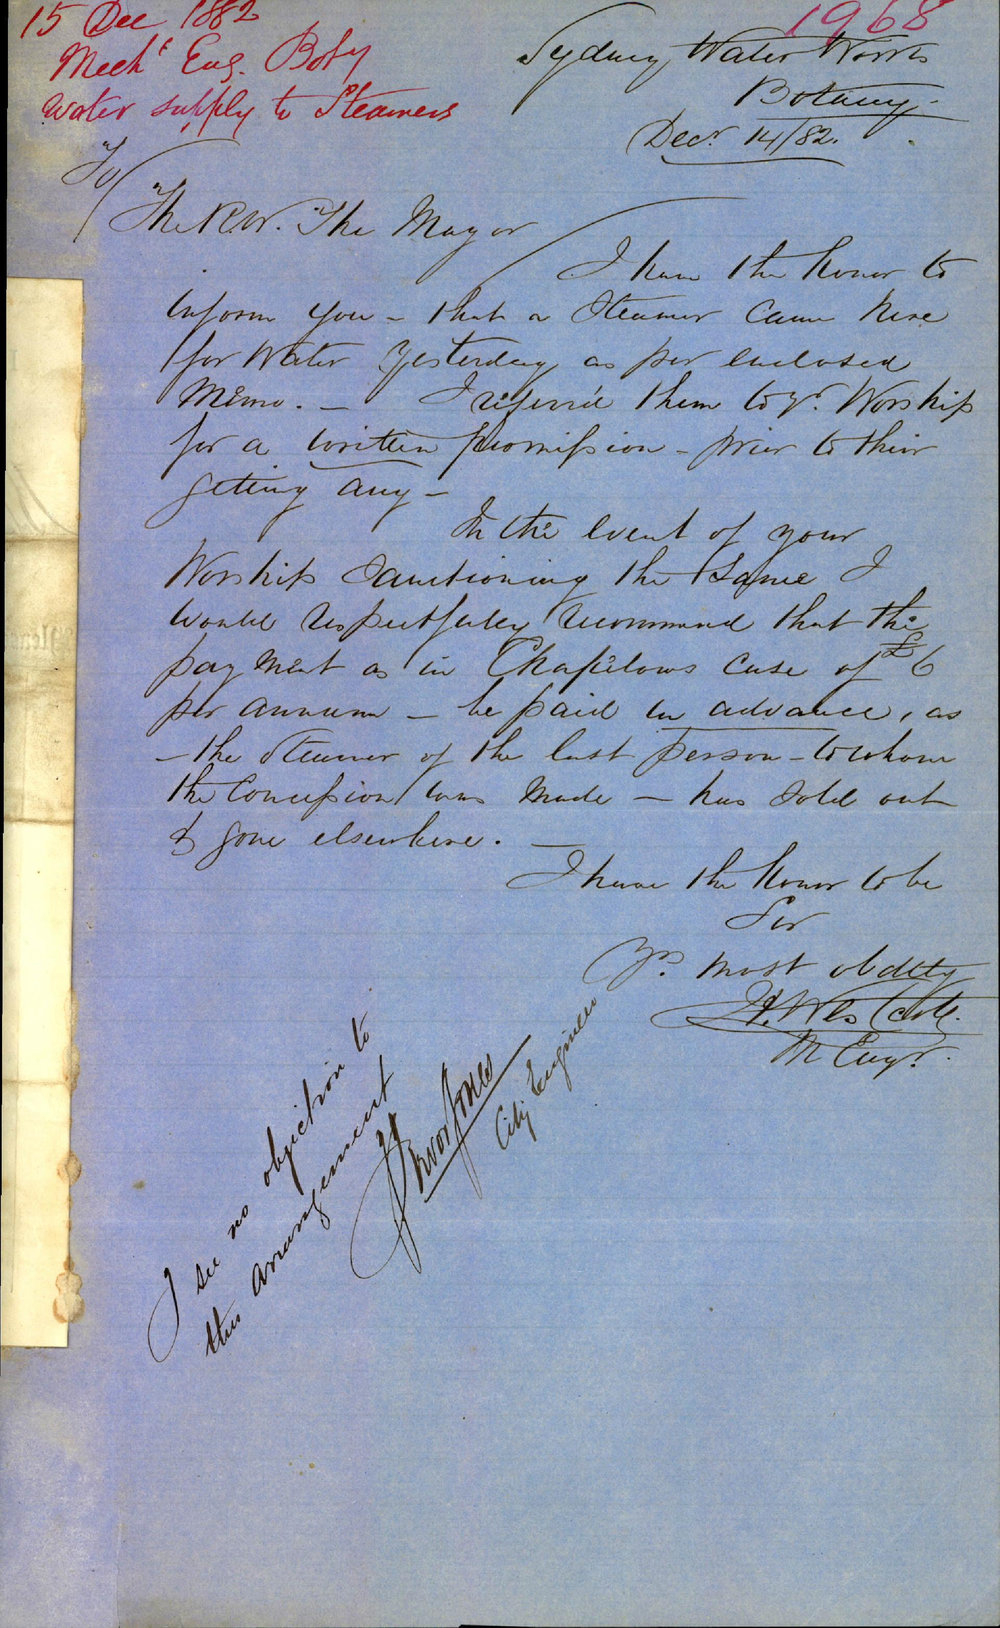 15 Dec 1882
Mech¹ Eng. Boty
Water supply to Steamers
1968
Sydney Water Works
Botany.
Decr. 14/82.
To/
The R.W. The Mayor
I have the honor to
inform you – that a Steamer came here
for Water yesterday as per enclosed
Memo. – I referred them to yr. Worship
for a written promission – prior to their
getting any –
In the event of your
Worship sanctioning the same I
would respectfully recommend that the
payment as in Chapelows case of £6
per annum – be paid in advance, as
– the steamer of the last person – to whom
the concession was made – has sold out
& gone elsewhere. –
I have the honor to be
Sir
Yrs. most obdtly
Westcott.
M Engr.
I see no objection to
this arrangement
Trevor Jones
City Engineer